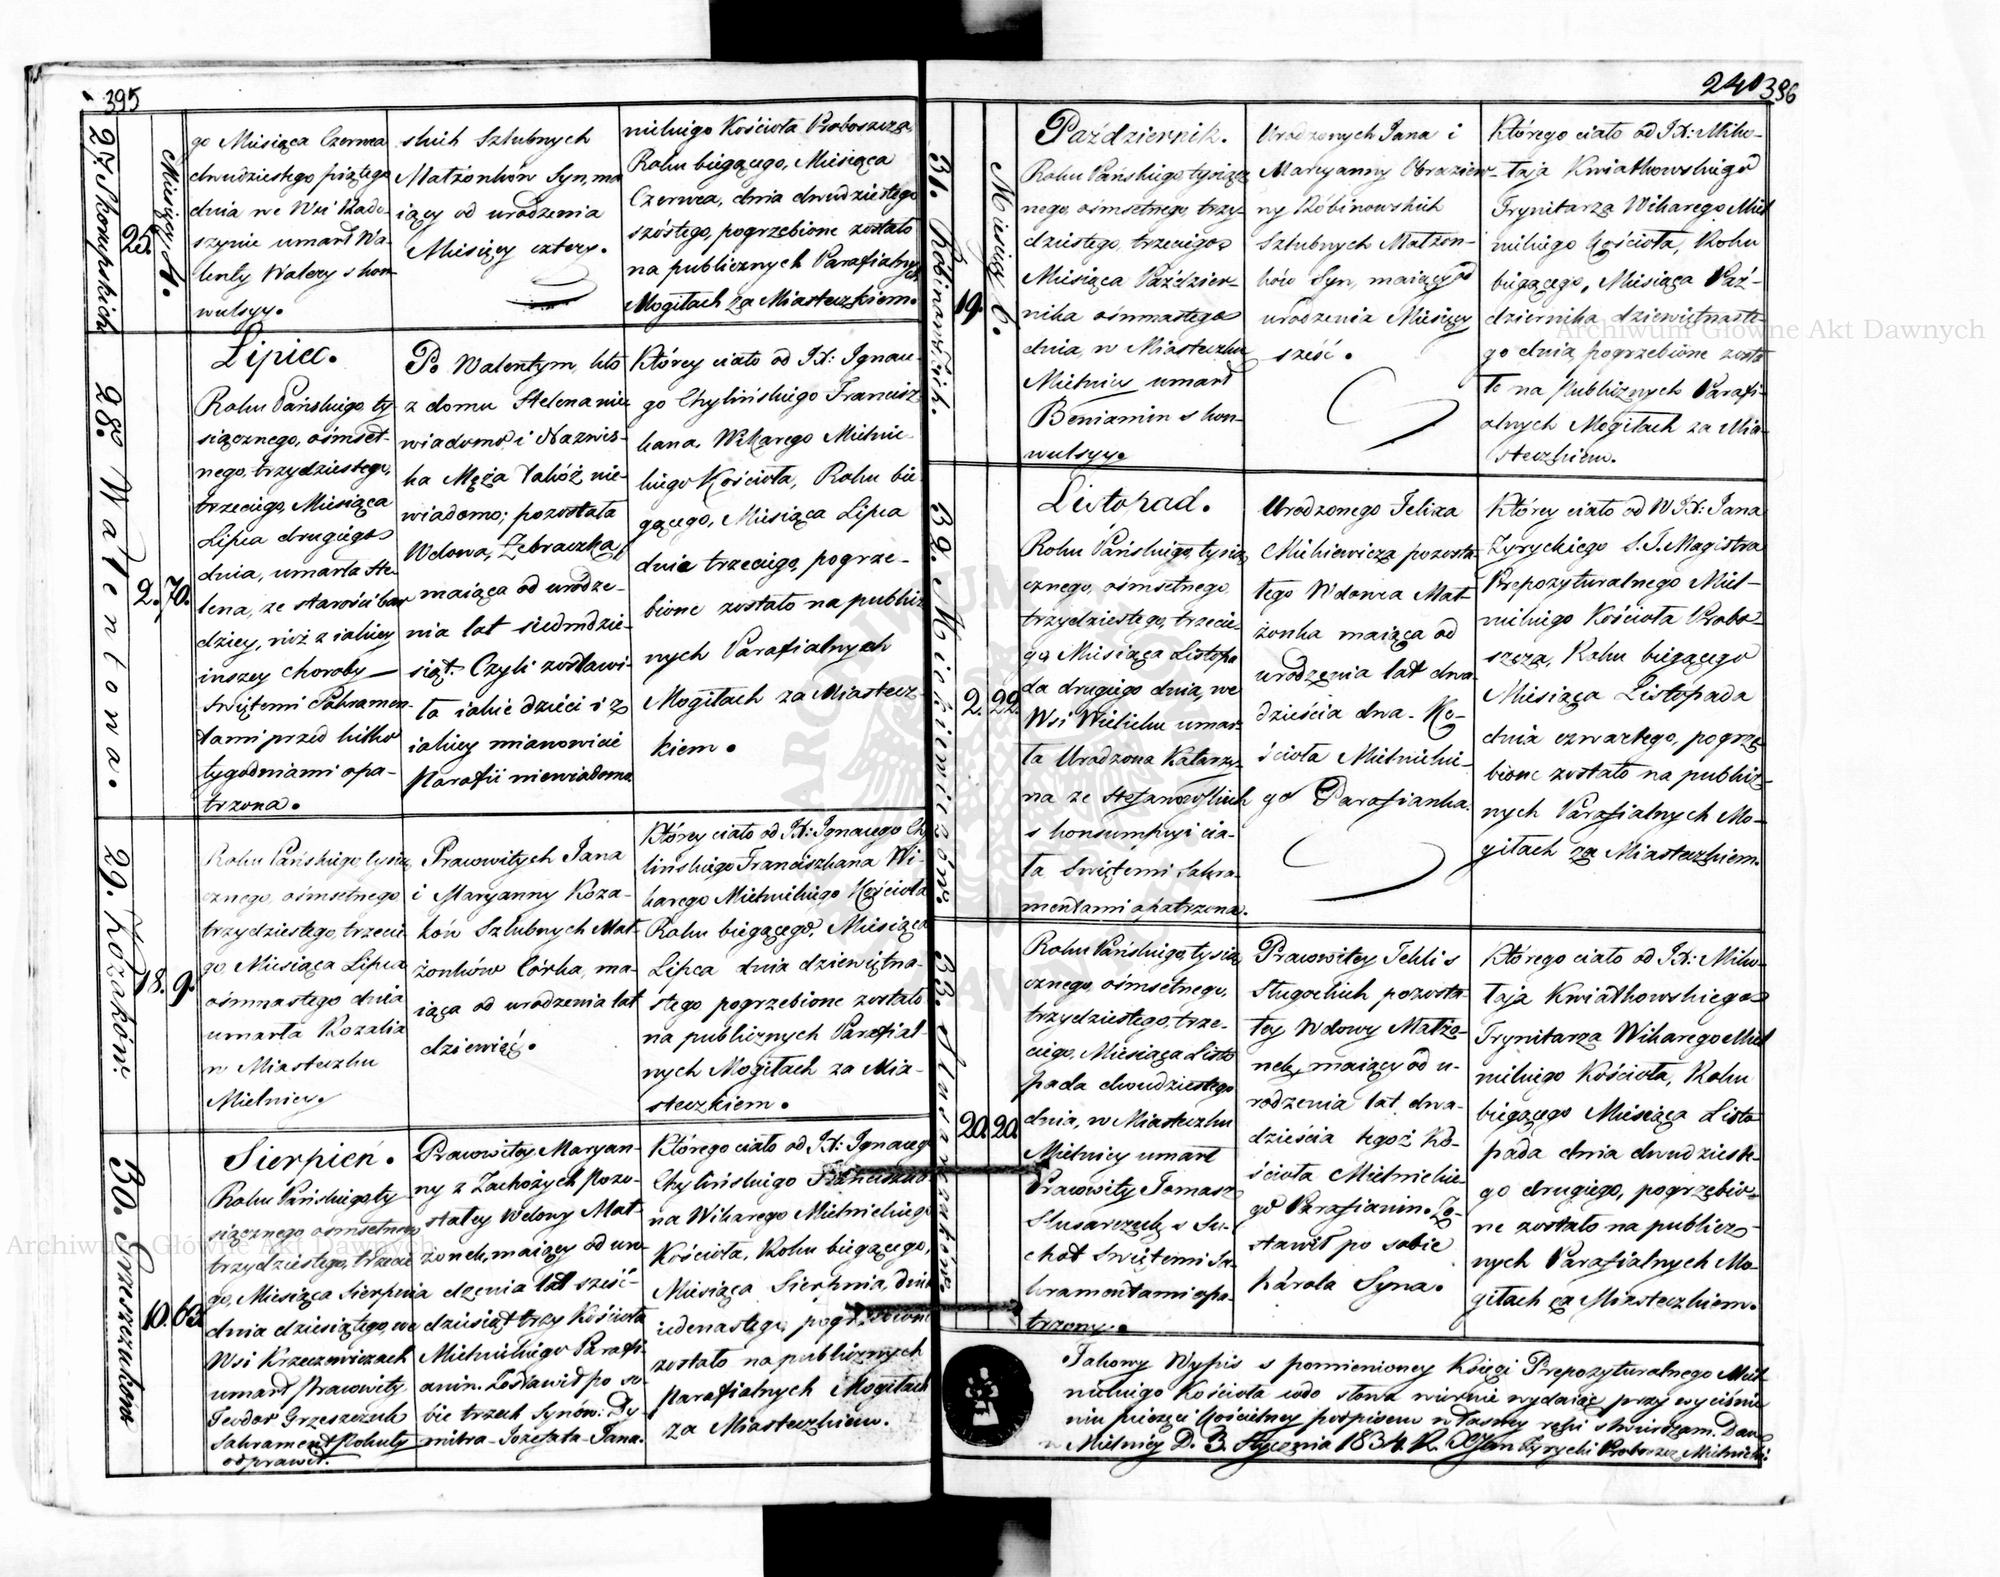 395
27. Skorupskich
25.
Miesięcy 4.
go Miesiąca Czerwca
dwudziestego piątego
dnia we Wsi Rado-
szynie umarł Wa-
lenty Walery s kon
wulsyy.
skich Szlubnych
Małżonków Syn, ma
iący od urodzenia
Miesięcy cztery.
nickiego Kościoła Proboszcza
Roku biegącego, Miesiąca
Czerwca, dnia dwudziestego
szóstego, pogrzebione zostało
na publicznych Parafialnych
Mogiłach za Miasteczkiem.
28. Walentowa.
2.
70.
Lipiec.
Roku Pańskiego ty-
siącznego, ośmset-
nego, trzydziestego,
trzeciego, Miesiąca
Lipca drugiego
dnia, umarła He-
lena, ze starości bar
dziey, niż z iakiey
inszey choroby —
Swiętemi Sakramen-
tami przed kilko
tygodniami opa-
trzona.
Po Walentym, kto
z domu Helena nie
wiadomo i Nazwis-
ka Męża takóż nie-
wiadomo; pozostała
Wdowa, Żebraczka,
maiąca od urodze-
nia lat siedmdzie-
siąt. Czyli zostawi-
ła iakie dzieci i z
iakiey mianowicie
Parafii niewiadomo
Którey ciało od IX: Ignace-
go Chylińskiego Francisz
kana, Wikarego Mielnic
kiego Kościoła, Roku bie-
gącego, Miesiąca Lipca
dnia trzeciego, pogrze-
bione zostało na publicz
nych Parafialnych
Mogiłach za Miastecz-
kiem.
29. Kozaków:
18.
9.
Roku Pańskiego tysią
cznego, ośmsetnego
trzydziestego, trzecie
go, Miesiąca Lipca
ośmnastego dnia
umarła Rozalia
w Miasteczku
Mielnicy.
Pracowitych Jana
i Maryanny Koza-
ków Szlubnych Mał-
żonków Córka, ma-
iąca od urodzenia lat
dziewięć.
Którey ciało od IX: Ignacego Chy
lińskiego Franciszkana Wi-
karego Mielnickiego Kościoła
Roku biegącego, Miesiąca
Lipca dnia dziewiętna-
stego pogrzebione zostało
na publicznych Parafial-
nych Mogiłach za Mia-
steczkiem.
30. Grzeszczuków
10.
63.
Sierpień.
Roku Pańskiego ty
siącznego ośmsetnego
trzydziestego, trzecie
go, Miesiąca Sierpnia
dnia dziesiątego, we
Wsi Krzeczewiczach
umarł Pracowity
Teodor Grzeszczuk
Sakrament Pokuty
odprawił.
Pracowitey Maryan-
ny z Zachożych pozo-
stałey Wdowy Mał-
żonek, maiący od uro-
dzenia lat sześć-
dziesiąt trzy Kościoła
Mielnickiego Parafi-
anin. Zostawił po so-
bie trzech Synów: Dy
mitra - Jozefata - Jana.
Którego ciało od IX: Ignacego
Chylińskiego Franciszka-
na Wikarego Mielnickiego
Kościoła, Roku biegącego,
Miesiąca Sierpnia, dnia
iedenastego, pogrzebione
zostało na publicznych
Parafialnych Mogiłach
za Miasteczkiem.
240 396
31. Robinowskich.
19.
Miesięcy 6.
Październik.
Roku Pańskiego tysiącz
nego, ośmsetnego, trzy-
dziestego, trzeciego
Miesiąca Paździer-
nika ośmnastego
dnia, w Miasteczku
Mielnicy umarł
Beniamin s kon-
wulsyy.
Urodzonych Jana i
Maryanny Obraziew-
ny Robinowskich
Szlubnych Małżon-
ków Syn, maiący od
urodzenia Miesięcy
sześć.
Którego ciało od IX: Miko-
łaja Kwiatkowskiego
Trynitarza Wikarego Miel
nickiego Kościoła, Roku
biegącego, Miesiąca Paź-
dziernika dziewiętnaste-
go dnia, pogrzebione zosta
ło na Publicznych Parafi-
alnych Mogiłach za Mia-
steczkiem.
32. Mickiewiczów.
2.
22.
Listopad.
Roku Pańskiego, tysią
cznego, ośmsetnego,
trzydziestego, trzecie-
go, Miesiąca Listopa
da drugiego dnia, we
Wsi Wielicku umar-
ła Urodzona Katarzy-
na ze Stefanowskich
s konsumpcyi cia-
ła Swiętemi Sakra-
mentami opatrzona.
Urodzonego Felixa
Mickiewicza pozosta-
łego Wdowca Mał-
żonka maiąca od
urodzenia lat dwa-
dzieścia dwa. Ko-
ścioła Mielnickie-
go Parafianka.
Którey ciało od WIX: Jana
Zyryckiego S. T. Magistra
Prepozyturalnego Miel-
nickiego Kościoła Probo-
szcza, Roku biegącego
Miesiąca Listopada
dnia czwartego, pogrze-
bione zostało na publicz-
nych Parafialnych Mo-
giłach za Miasteczkiem.
33. Slusarczuków.
20.
20.
Roku Pańskiego, tysią
cznego, ośmsetnego,
trzydziestego, trze-
ciego, Miesiąca Listo
pada dwudziestego
dnia, w Miasteczku
Mielnicy umarł
Pracowity Tomasz
Slusarczuk s Su-
chot Swiętemi Sa-
kramentami opa-
trzony.
Pracowitey Tekli s
Sługockich pozosta-
łey Wdowy Małżo-
nek, maiący od u-
rodzenia lat dwa-
dzieścia tegoż Ko-
ścioła Mielnickie-
go Parafianin. Zo-
stawił po sobie
Karola Syna.
Którego ciało od IX: Miko-
łaja Kwiatkowskiego
Trynitarza Wikarego Miel
nickiego Kościoła, Roku
biegącego Miesiąca Listo-
pada dnia dwudzieste-
go drugiego, pogrzebio-
ne zostało na publicz-
nych Parafialnych Mo-
giłach za Miasteczkiem.
Takowy Wypis s pomienioney Księgi Prepozyturalnego Miel
nickiego Kościoła co do słowa wiernie wydaiąc przy wyciśnie
niu pieczęci Kościelney podpisem własney ręki stwierdzam. Dan
w Mielnicy D. 3. Stycznia 1834. R. X Jan Zyrycki Proboszcz Mielnicki.
Archiwum Główne Akt Dawnych
Archiwum Główne Akt Dawnych